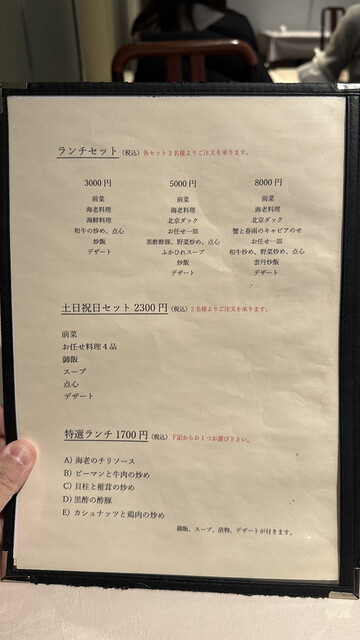 ランチセット（税込）各セット2名様よりご注文を承ります。
3000円
前菜
海老料理
海鮮料理
和牛の炒め、点心
炒飯
デザート
5000円
前菜
海老料理
北京ダック
お任せ一皿
黒酢酢豚、野菜炒め、点心
ふかひれスープ
炒飯
デザート
8000円
前菜
海老料理
北京ダック
蟹と春雨のキャビアのせ
お任せ一皿
和牛炒め、炒め、点心
雲丹炒飯
デザート
土日祝日セット2300円（税込）2名様よりご注文を承ります。
前菜
お任せ料理4品
御飯
スープ
点心
デザート
特選ランチ1700円（税込）下記からお1つお選び下さい。
A) 海老のチリソース
B) ピーマンと牛肉の炒め
C) 貝柱と椎茸の炒め
D) 黒酢の酢豚
E) カシュナッツと鶏肉の炒め
御飯、スープ、漬物、デザートが付きます。